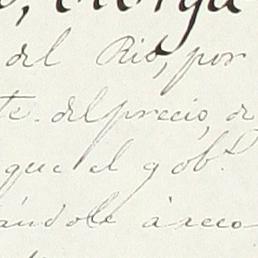 otorga
del Rio, por
te. del precio, de
que el gob.º
ándole á reco